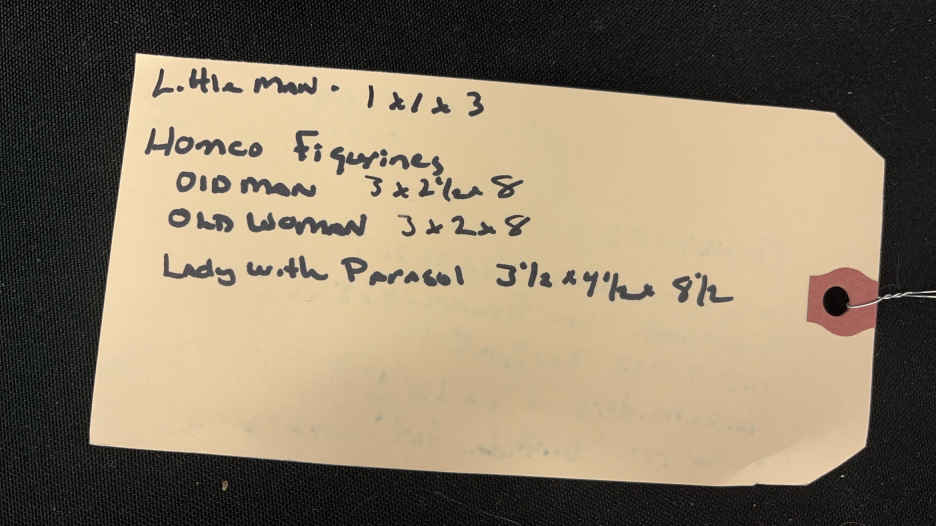 Little MAN. 1 x 1 x 3
Homco Figurines
OlD MAN 3 x 2 1/2 x 8
OLD WOMAN 3 x 2 x 8
Lady with Parasol 3 1/2 x 4 1/2 x 8 1/2